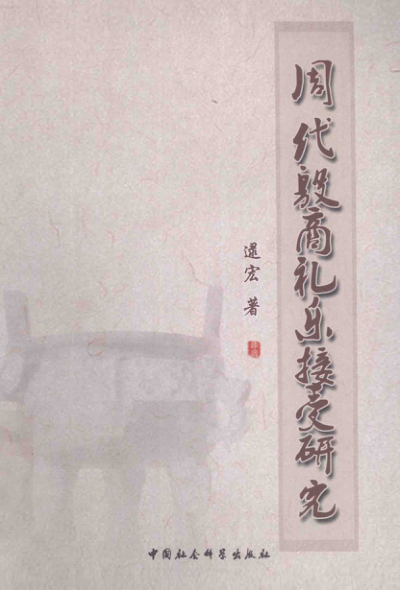 周代殷商礼乐接受研究
逯宏 著
中国社会科学出版社